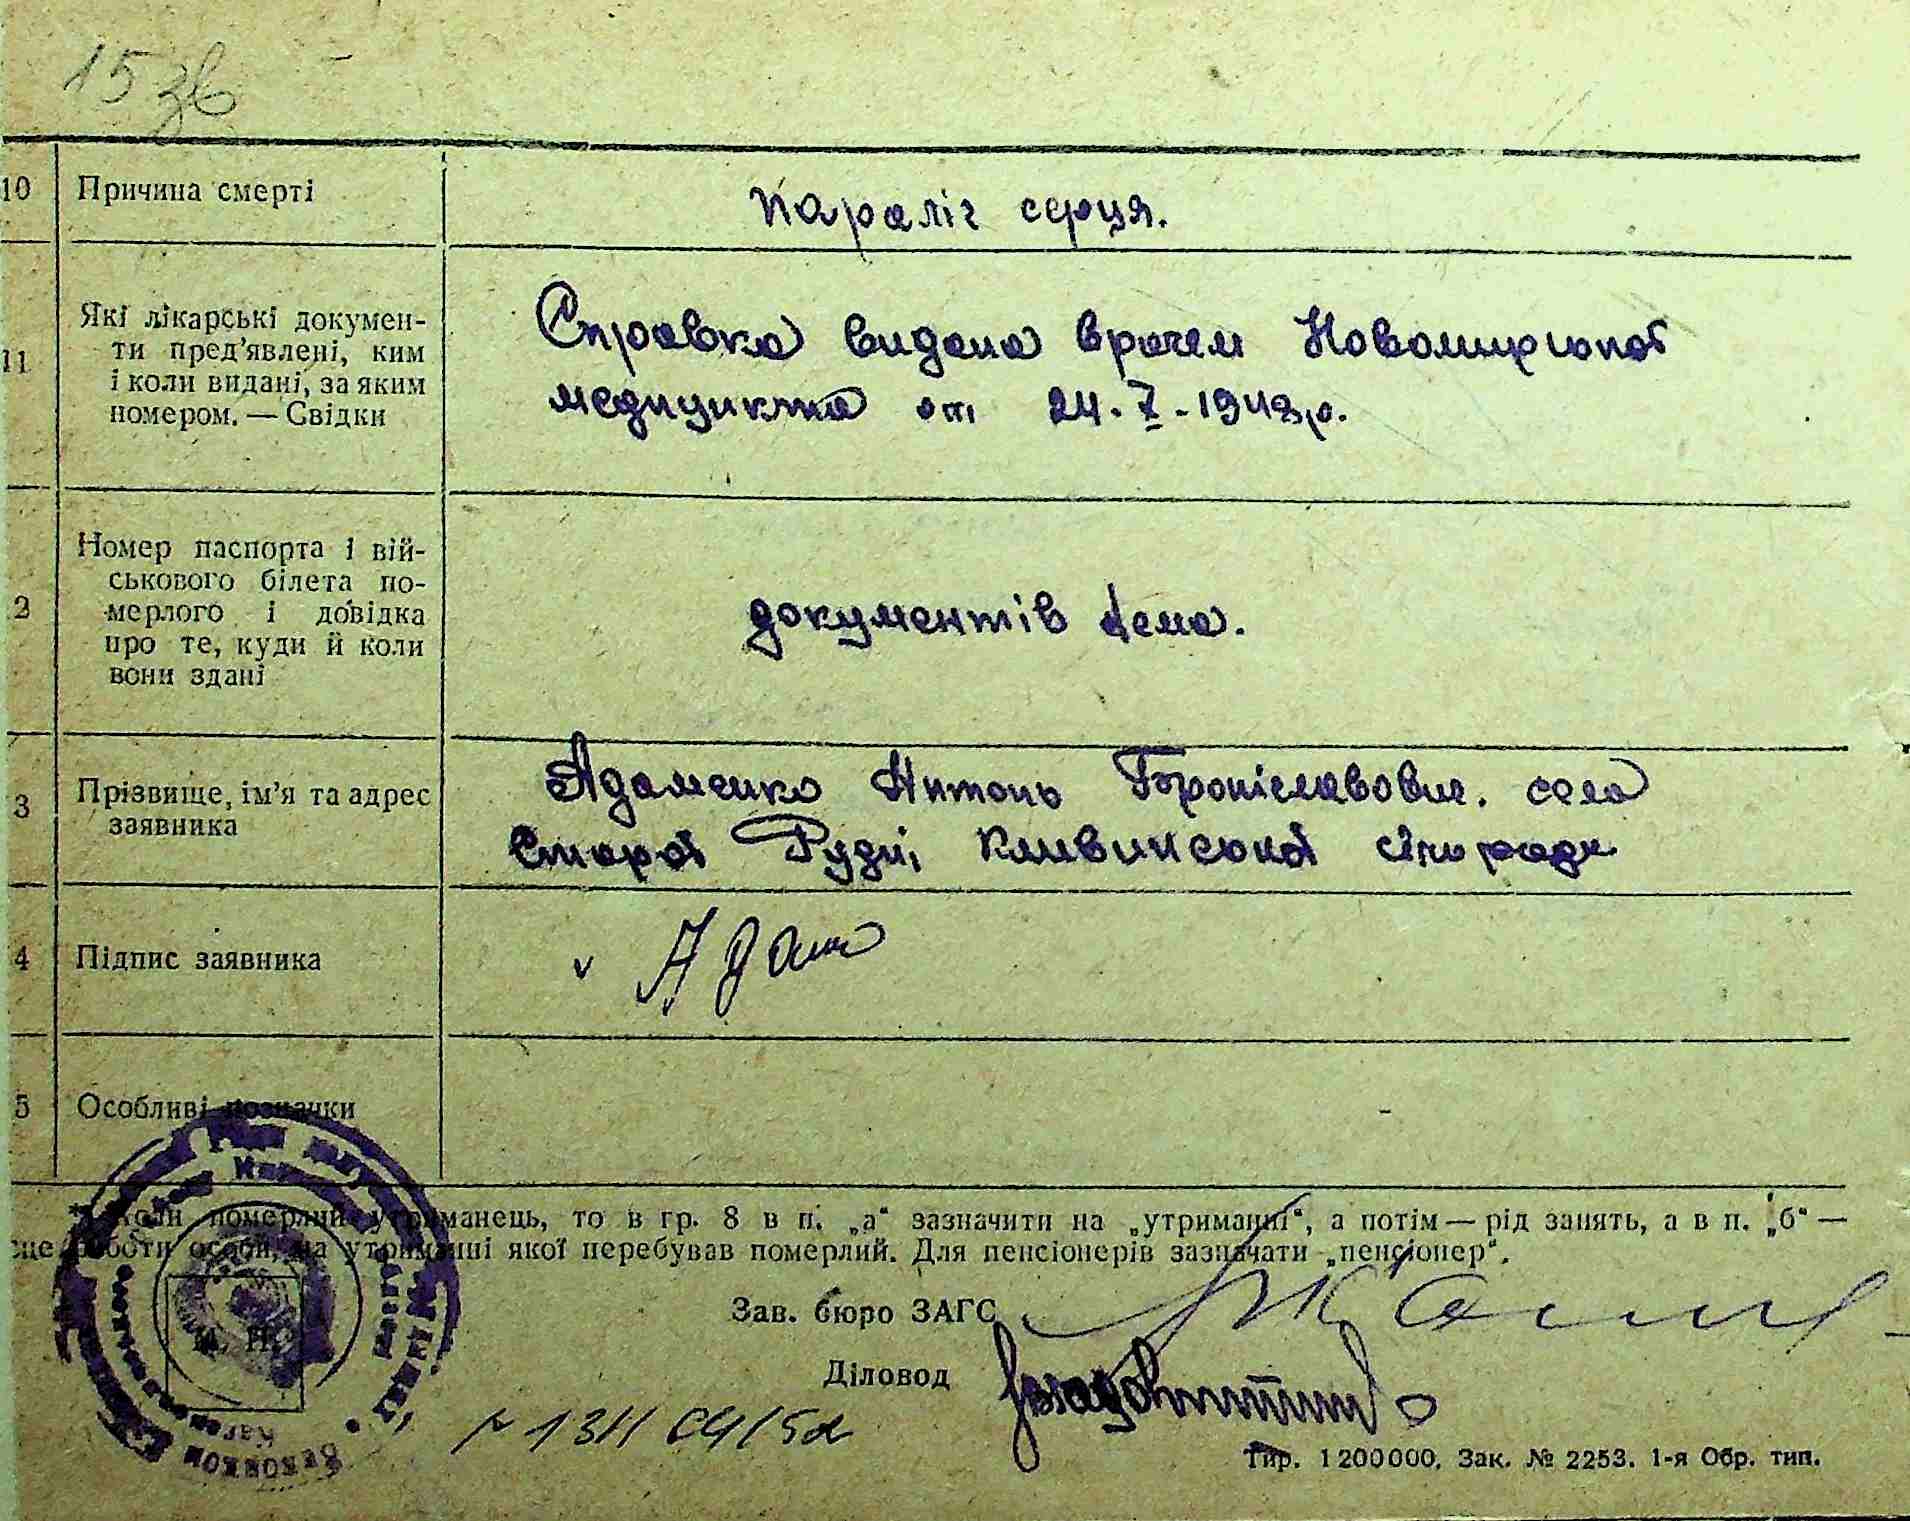 15 зв
10 Причина смерті
Параліч серця.
11 Які лікарські докумен-
ти пред'явлені, ким
і коли видані, за яким
номером. — Свідки
Справка видана врачем
медицикта от 24-7-1948р.
2 Номер паспорта і вій-
ськового білета по-
мерлого і довідка
про те, куди й коли
вони здані
документів нема.
3 Прізвище, ім'я та адрес
заявника
Адаменко Антонь Броніславович. села
Старої Рудні, сіль ради
4 Підпис заявника
v Адам
5 Особливі позначки
-
*) Коли померлий утриманець, то в гр. 8 в п. „а" зазначити на „утриманні", а потім — рід занять, а в п. „б" —
сце роботи особи, на утриманні якої перебував померлий. Для пенсіонерів зазначати „пенсіонер".
Зав. бюро ЗАГС
Діловод
М. П.
Тир. 1200000. Зак. № 2253. 1-я Обр. тип.